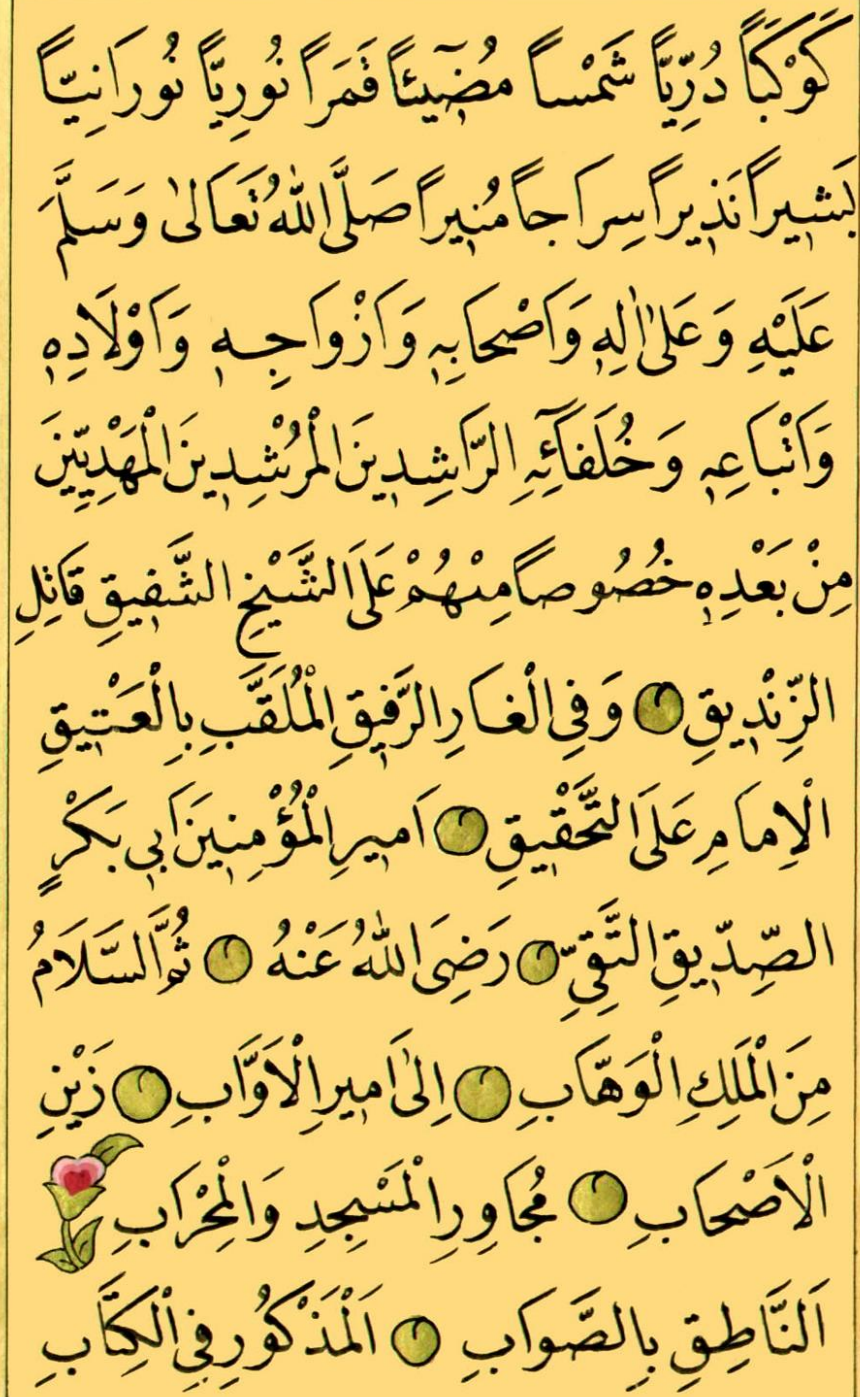 كَوْكَبًا دُرِّيًّا شَمْسًا مُضِيٓئًا قَمَرًا نُورِيًّا نُورَانِيًّا
بَشِيرًا نَذِيرًا سِرَاجًا مُنِيرًا صَلَّى اللّٰهُ تَعَالٰى وَسَلَّمَ
عَلَيْهِ وَعَلٰى اٰلِهٖ وَاَصْحَابِهٖ وَاَزْوَاجِهٖ وَاَوْلَادِهٖ
وَاَتْبَاعِهٖ وَخُلَفَٓائِهِ الرَّاشِدِينَ الْمُرْشِدِينَ الْمَهْدِيِّينَ
مِنْ بَعْدِهٖ خُصُوصًا مِنْهُمْ عَلَى الشَّيْخِ الشَّفِيقِ قَاتِلِ
الزِّنْدِيقِ ۝ وَفِي الْغَارِ الرَّفِيقِ الْمُلَقَّبِ بِالْعَتِيقِ
الْاِمَامِ عَلَى التَّحْقِيقِ ۝ اَمِيرِ الْمُؤْمِنِينَ اَبِي بَكْرٍ
الصِّدِّيقِ التَّقِيِّ ۝ رَضِيَ اللّٰهُ عَنْهُ ۝ ثُمَّ السَّلَامُ
مِنَ الْمَلِكِ الْوَهَّابِ ۝ اِلٰى اَمِيرِ الْاَوَّابِ ۝ زَيْنِ
الْاَصْحَابِ ۝ مُجَاوِرِ الْمَسْجِدِ وَالْمِحْرَابِ
اَلنَّاطِقِ بِالصَّوَابِ ۝ اَلْمَذْكُورِ فِي الْكِتَابِ